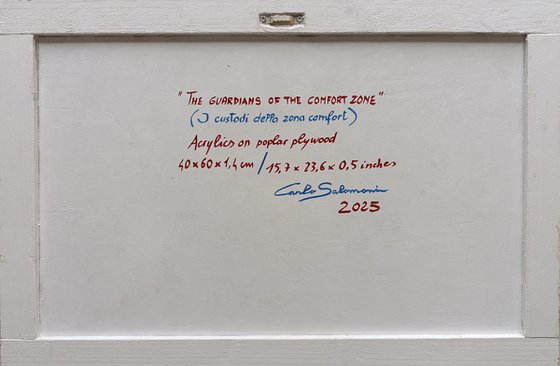 "THE GUARDIANS OF THE COMFORT ZONE"
(I custodi della zona comfort)
Acrylics on poplar plywood
40x60x1,4 cm / 15,7 x 23,6 x 0,5 inches
Carlo Salomoni
2025